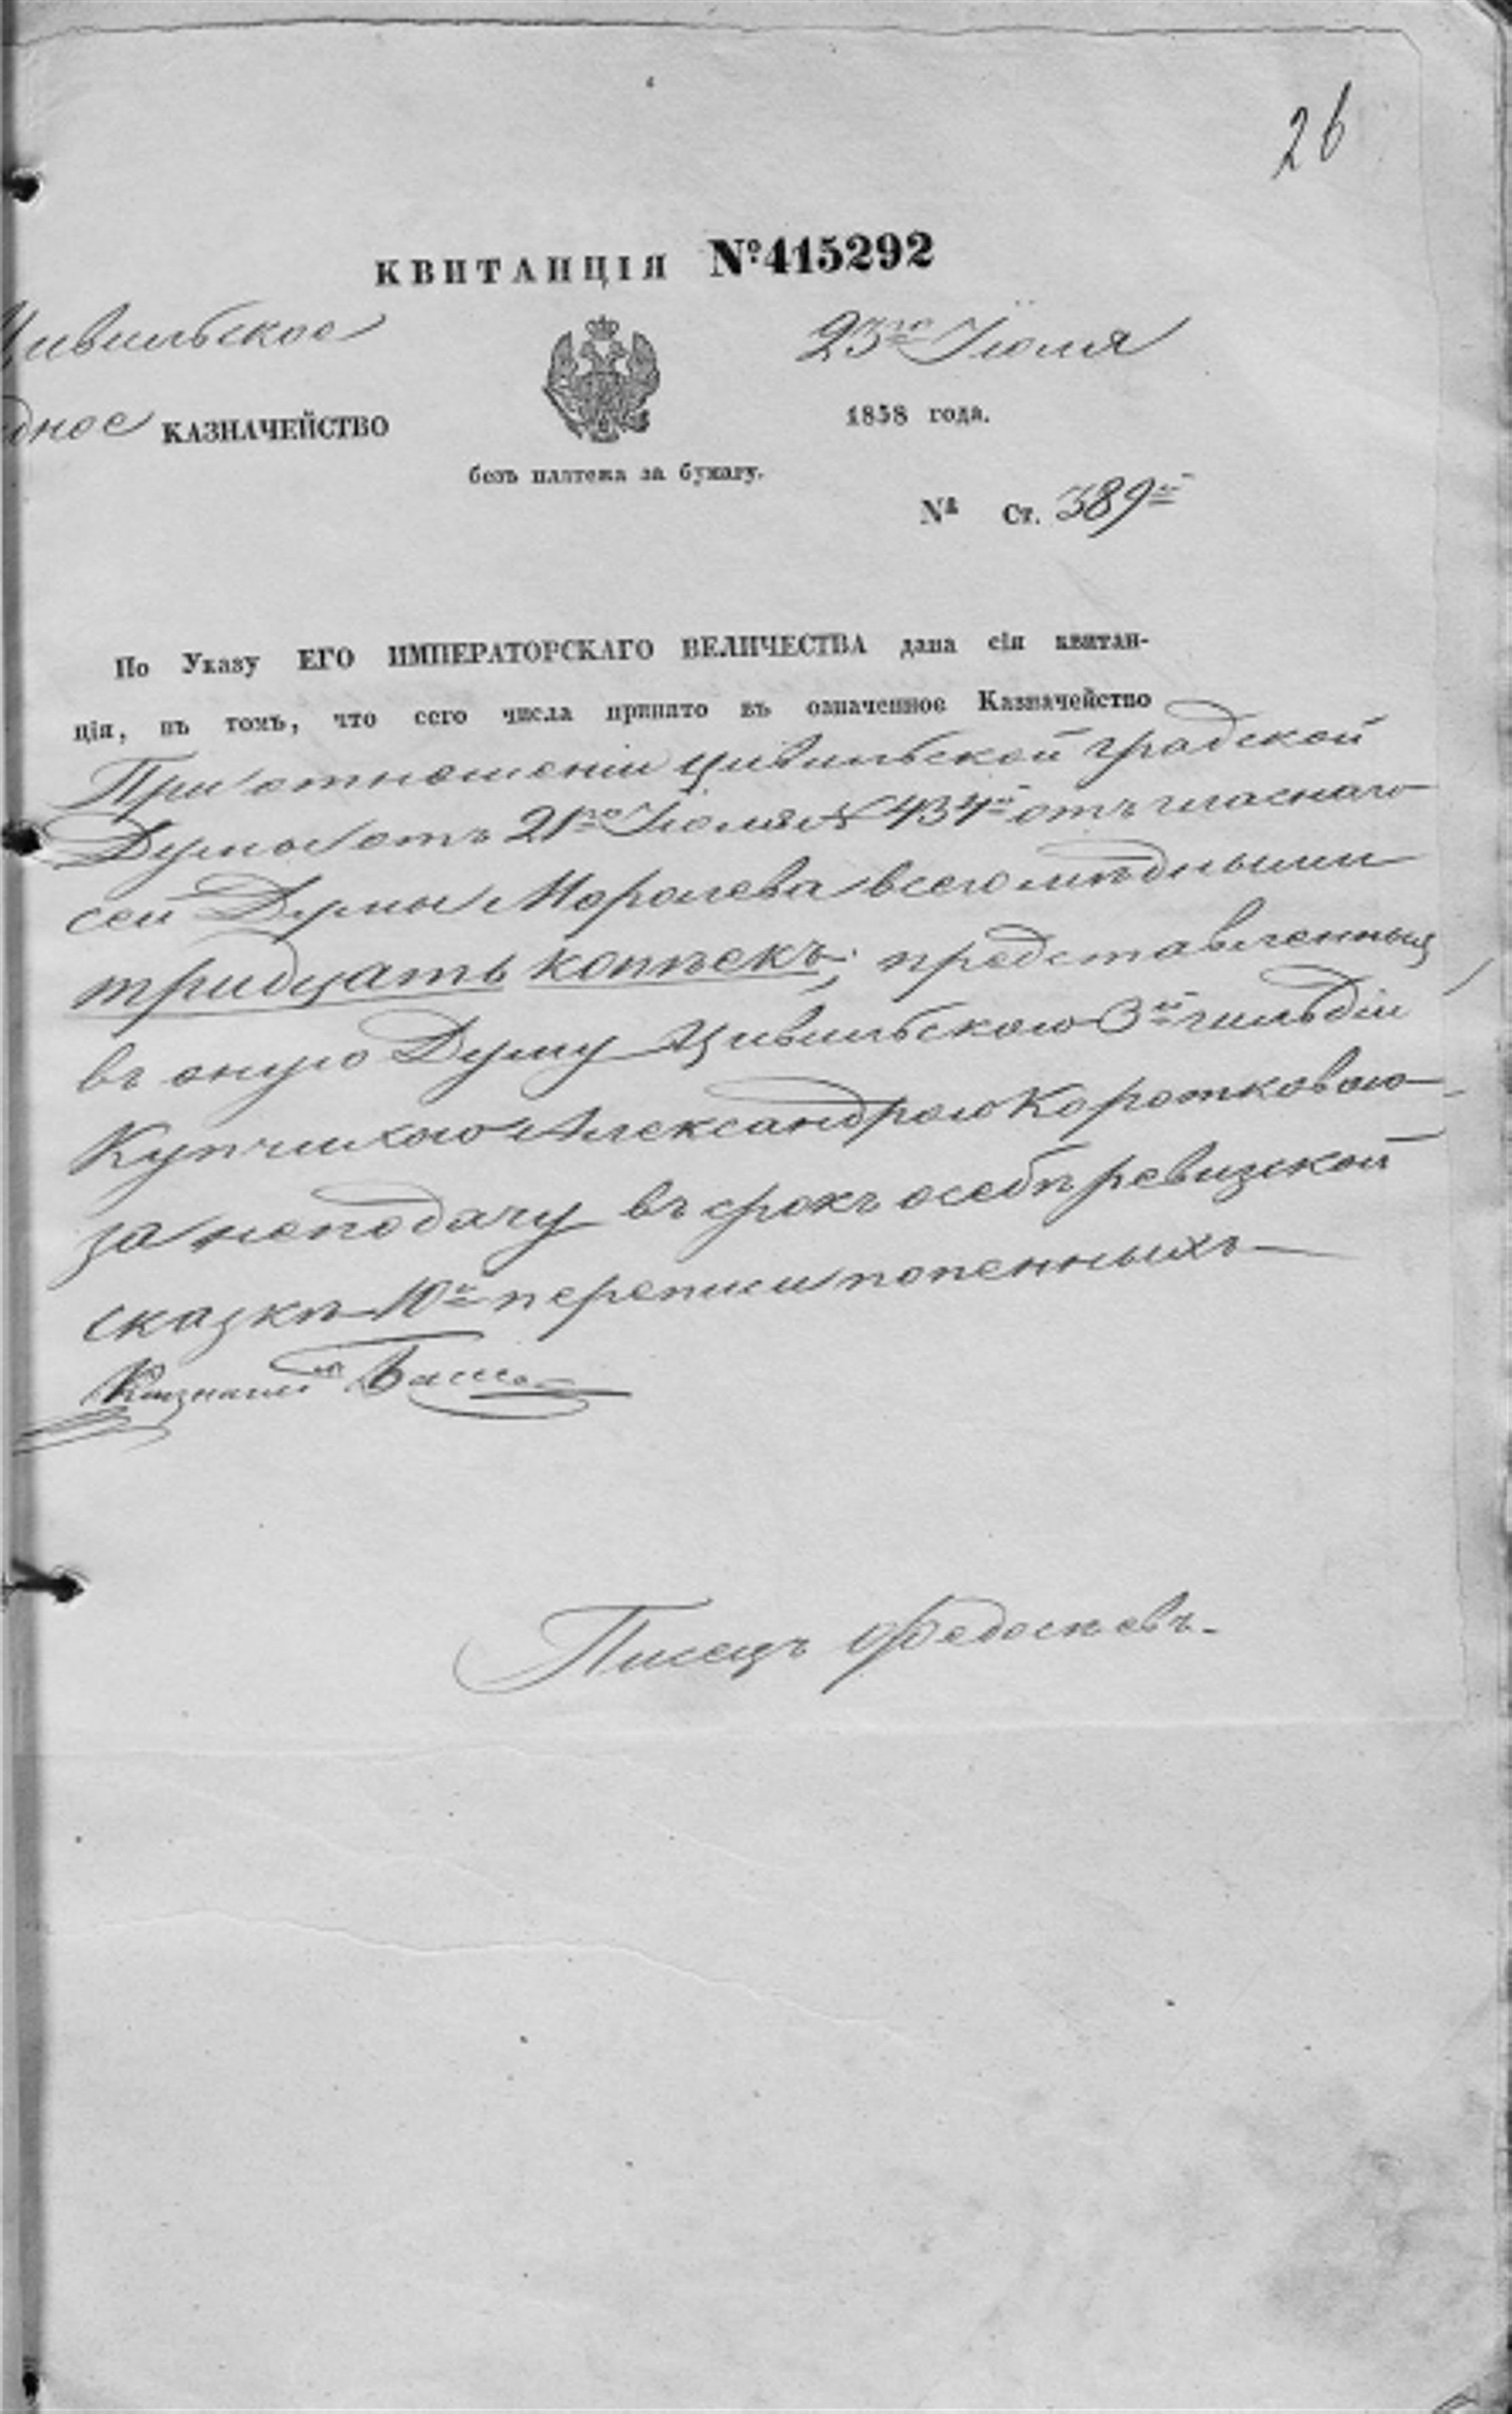 26
КВИТАНЦІЯ №415292
Цивильское
23го Іюля
дное КАЗНАЧЕЙСТВО
1858 года.
безъ платежа за бумагу.
№ Ст. 389й
По Указу ЕГО ИМПЕРАТОРСКАГО ВЕЛИЧЕСТВА дана сія квитан-
ція, въ томъ, что сего числа принято въ означенное Казначейство
При отношеніи Цивильской градской
Думы отъ 21го Іюля № 434м отъ гласнаго
сей Думы всего мѣдными
тридцать копѣекъ; представленныя
въ оную Думу Цивильскою 3й гильдіи
Купчихою Александрою Коротковою
за неподачу въ срокъ о себѣ ревизской
сказки 10й переписи попенныхъ
Казначей
Писецъ Федосѣевъ